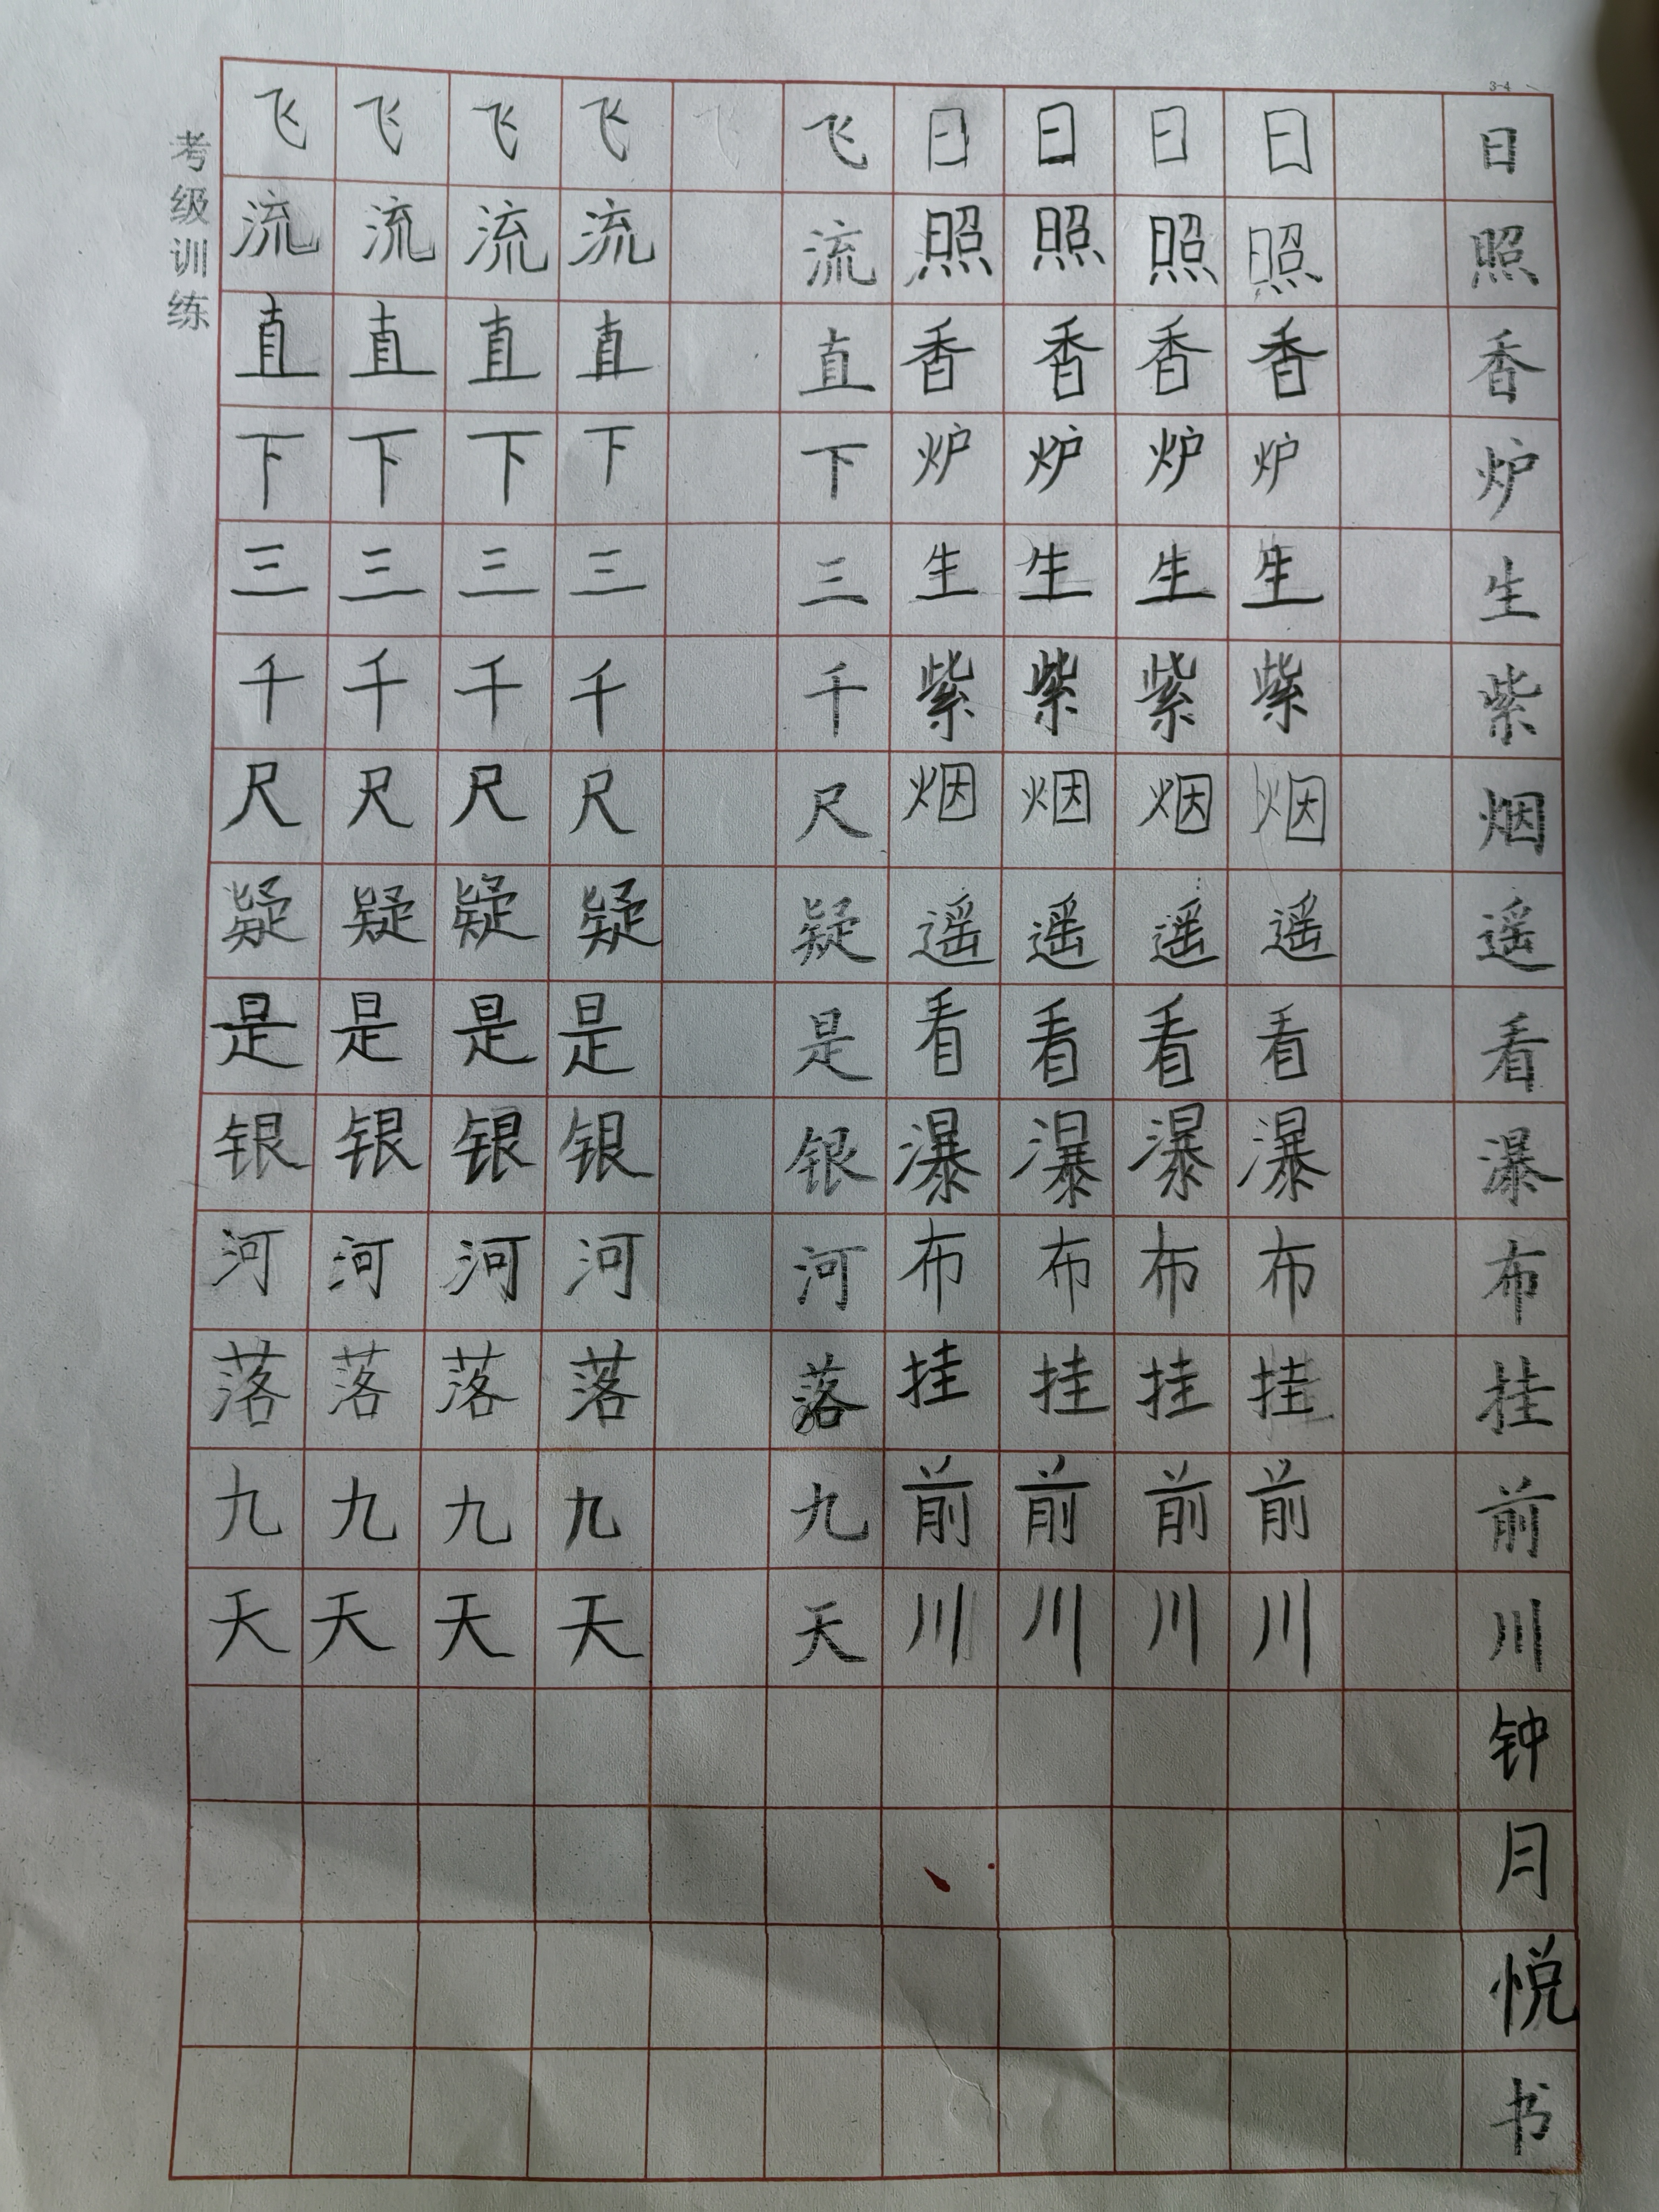 3-4
日照香炉生紫烟遥看瀑布挂前川钟月悦书
日照香炉生紫烟遥看瀑布挂前川
日照香炉生紫烟遥看瀑布挂前川
日照香炉生紫烟遥看瀑布挂前川
日照香炉生紫烟遥看瀑布挂前川
飞流直下三千尺疑是银河落九天
飞流直下三千尺疑是银河落九天
飞流直下三千尺疑是银河落九天
飞流直下三千尺疑是银河落九天
飞流直下三千尺疑是银河落九天
考级训练